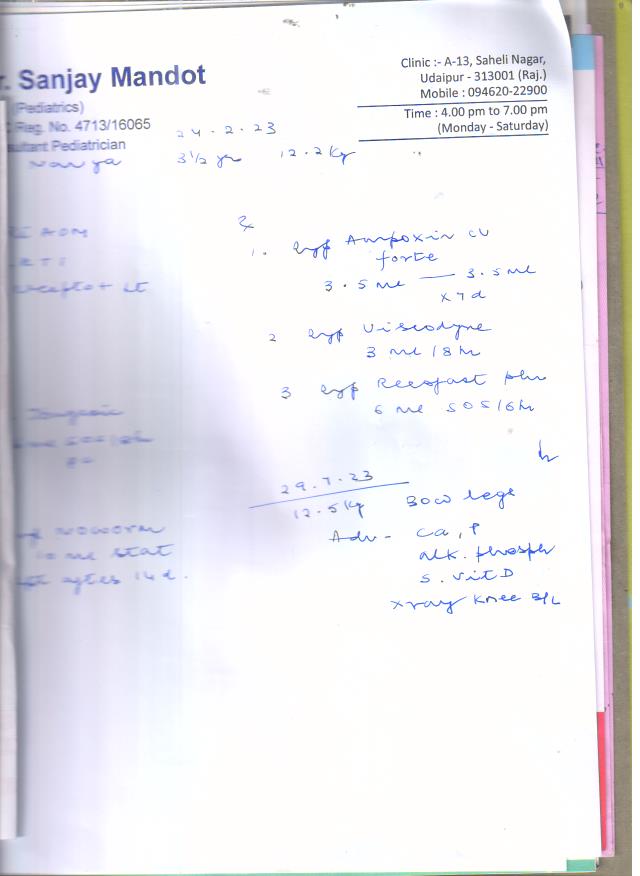 r. Sanjay Mandot
(Pediatrics)
Reg. No. 4713/16065
sultant Pediatrician
Clinic :- A-13, Saheli Nagar,
Udaipur - 313001 (Raj.)
Mobile : 094620-22900
Time : 4.00 pm to 7.00 pm
(Monday - Saturday)
24.2.23
3½ yr 12.2 kg
AOM
1. Syp Ampoxin CV
forte
3.5 ml — 3.5 ml
x 7 d
2 Syp Viscodyne
3 ml / 8 hr
3 Syp
6 ml SOS / 6 hr
29.7.23
12.5 kg Bow legs
Adv - Ca, P
alk. phosph
S. Vit D
xray Knee B/L
Noworm
10 ml stat
14 d.